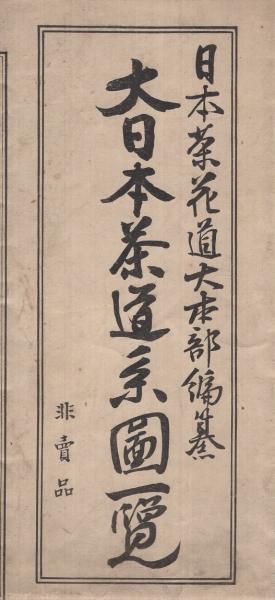 日本茶花道大本部編纂
大日本茶道系圖一覽
非賣品